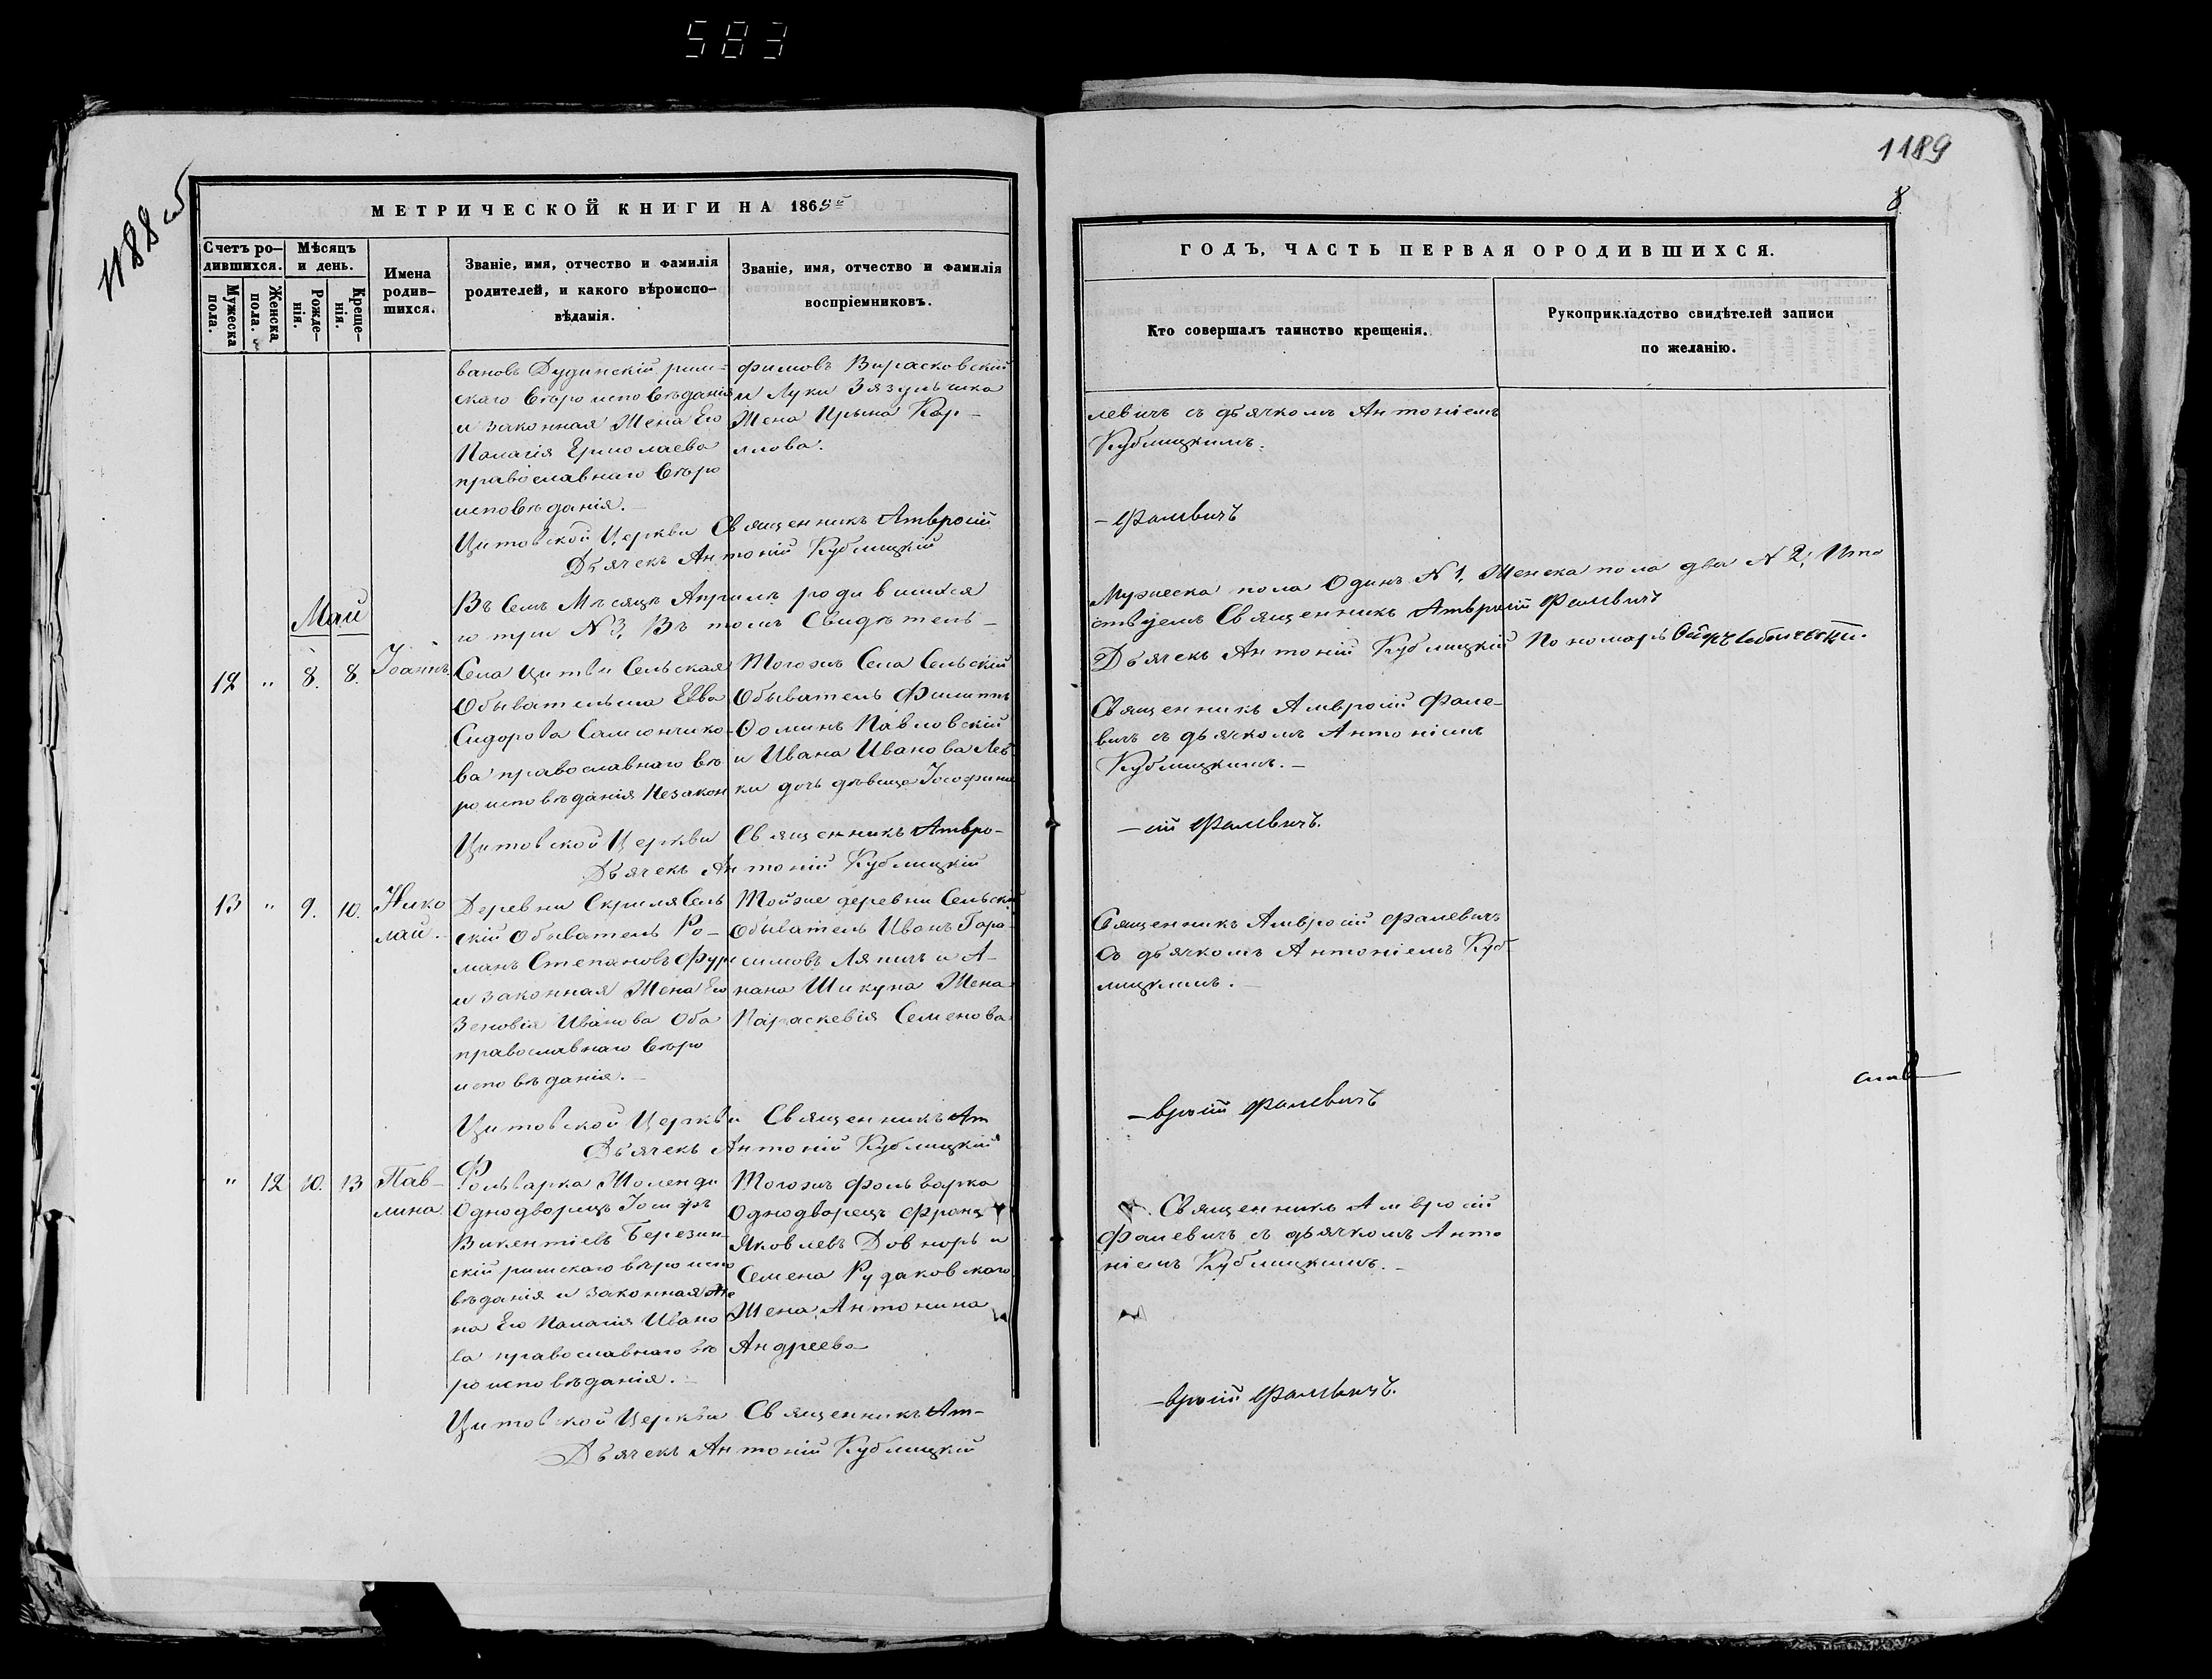 583
1188 об
МЕТРИЧЕСКОЙ КНИГИ НА 1865й
Счетъ ро-
дившихся.
Мужеска
пола.
Женска
пола.
Мѣсяцъ
и день.
Рожде-
нія.
Креще-
нія.
Имена
родив-
шихся.
Званіе, имя, отчество и фамилія
родителей, и какого вѣроиспо-
вѣданія.
Званіе, имя, отчество и фамилія
воспріемниковъ.
вановъ Дудинскій рим-
скаго вѣроисповѣданія
и законная Жена Его
Палагія Ермолаева
православнаго вѣро
исповѣданія.
фимовъ Вирасковскій
и Луки Зязульчика
Жена Ирына Кар-
лова.
Цитовской Церкви Священникъ Амвросій
Дьячекъ Антоній Кублицкій
Въ семъ Мѣсяцѣ Априлѣ родившихся
го три N 3, Въ томъ Свидѣтель-
Май
12 " 8. 8. Іоаннъ.
Села Цитвы Сельская
Обывательша Евва
Сидорова Самсончико-
ва православнаго вѣ
роисповѣданія Незакон
Тогожъ Села Сельскій
Обыватель Филиппъ
Ѳоминъ Павловскій
и Ивана Иванова Лев
ки дочь дѣвица Іософина
Цитовской Церкви Священникъ Амвро-
Дьячекъ Антоній Кублицкій
13 " 9. 10. Нико
лай.
Деревни Скриля Сель
скій Обыватель Ро-
манъ Степановъ Фурс
и законная Жена Его
Зеновія Иванова Оба
православнаго вѣро
исповѣданія.
Тойже деревни Сельскій
Обыватель Иванъ Гара-
симовъ Ляпичъ и А-
нана Шикуна Жена
Параскевія Семенова
Цитовской Церкви Священникъ Ам
Дьячекъ Антоній Кублицкій
" 12 10. 13 Пав-
лина
Фольварка Моленди
Однодворецъ Іосифъ
Викентіевъ Березин-
скій римскаго вѣроиспо
вѣданія и законная Же
на Его Палагія Ивано
ва православнаго вѣ
роисповѣданія.
Тогожъ фольварка
Однодворецъ Францъ
Яковлевъ Довноръ и
Семена Рудаковскаго
Жена Антонина
Андреева
Цитовской Церкви Священникъ Ам-
Дьячекъ Антоній Кублицкій
1189
8
ГОДЪ, ЧАСТЬ ПЕРВАЯ О РОДИВШИХСЯ.
Кто совершалъ таинство крещенія.
Рукоприкладство свидѣтелей записи
по желанію.
левичъ съ дьячкомъ Антоніемъ
Кублицкимъ.
- Фалевичъ
Мужеска пола Одинъ N 1, Женска пола два N 2; Ито
ствуемъ Священникъ Амвросій Фалевичъ
Дьячекъ Антоній Кублицкій Пономарь
Священникъ Амвросій Фале-
вичъ съ дьячкомъ Антоніемъ
Кублицкимъ.-
-сій Фалевичъ.
Священникъ Амвросій Фалевичъ
съ дьячкомъ Антоніемъ Куб
лицкимъ.-
-вросій Фалевичъ
Священникъ Амвросій
Фалевичъ съ дьячкомъ Анто
ніемъ Кублицкимъ.-
-вросій Фалевичъ.